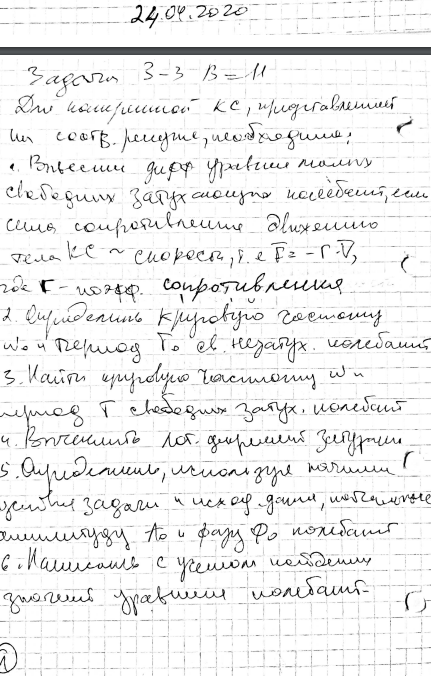 24.04.2020
Задача 3-3 В=11
Для конкретной КС, представленной
на соотв. рисунке, необходимо:
1. Вывести дифф уравнен малых
свободных затухающих колебаний, если
сила сопротивления движению
тела КС ~ скорости, т. е F̅ = -r·V̅,
где r - коэфф. сопротивления
2. Определить круговую частоту
ω₀ и период T₀ св. незатух. колебаний
3. Найти круговую частоту ω и
период T свободных затух. колебаний
4. Вычислить лог. декремент затухан
5. Определить, используя начальн
условия задачи и исход. данн, начальные
амплитуду A₀ и фазу φ₀ колебаний
6. Написать с учетом найденных
значений уравнение колебаний.
1